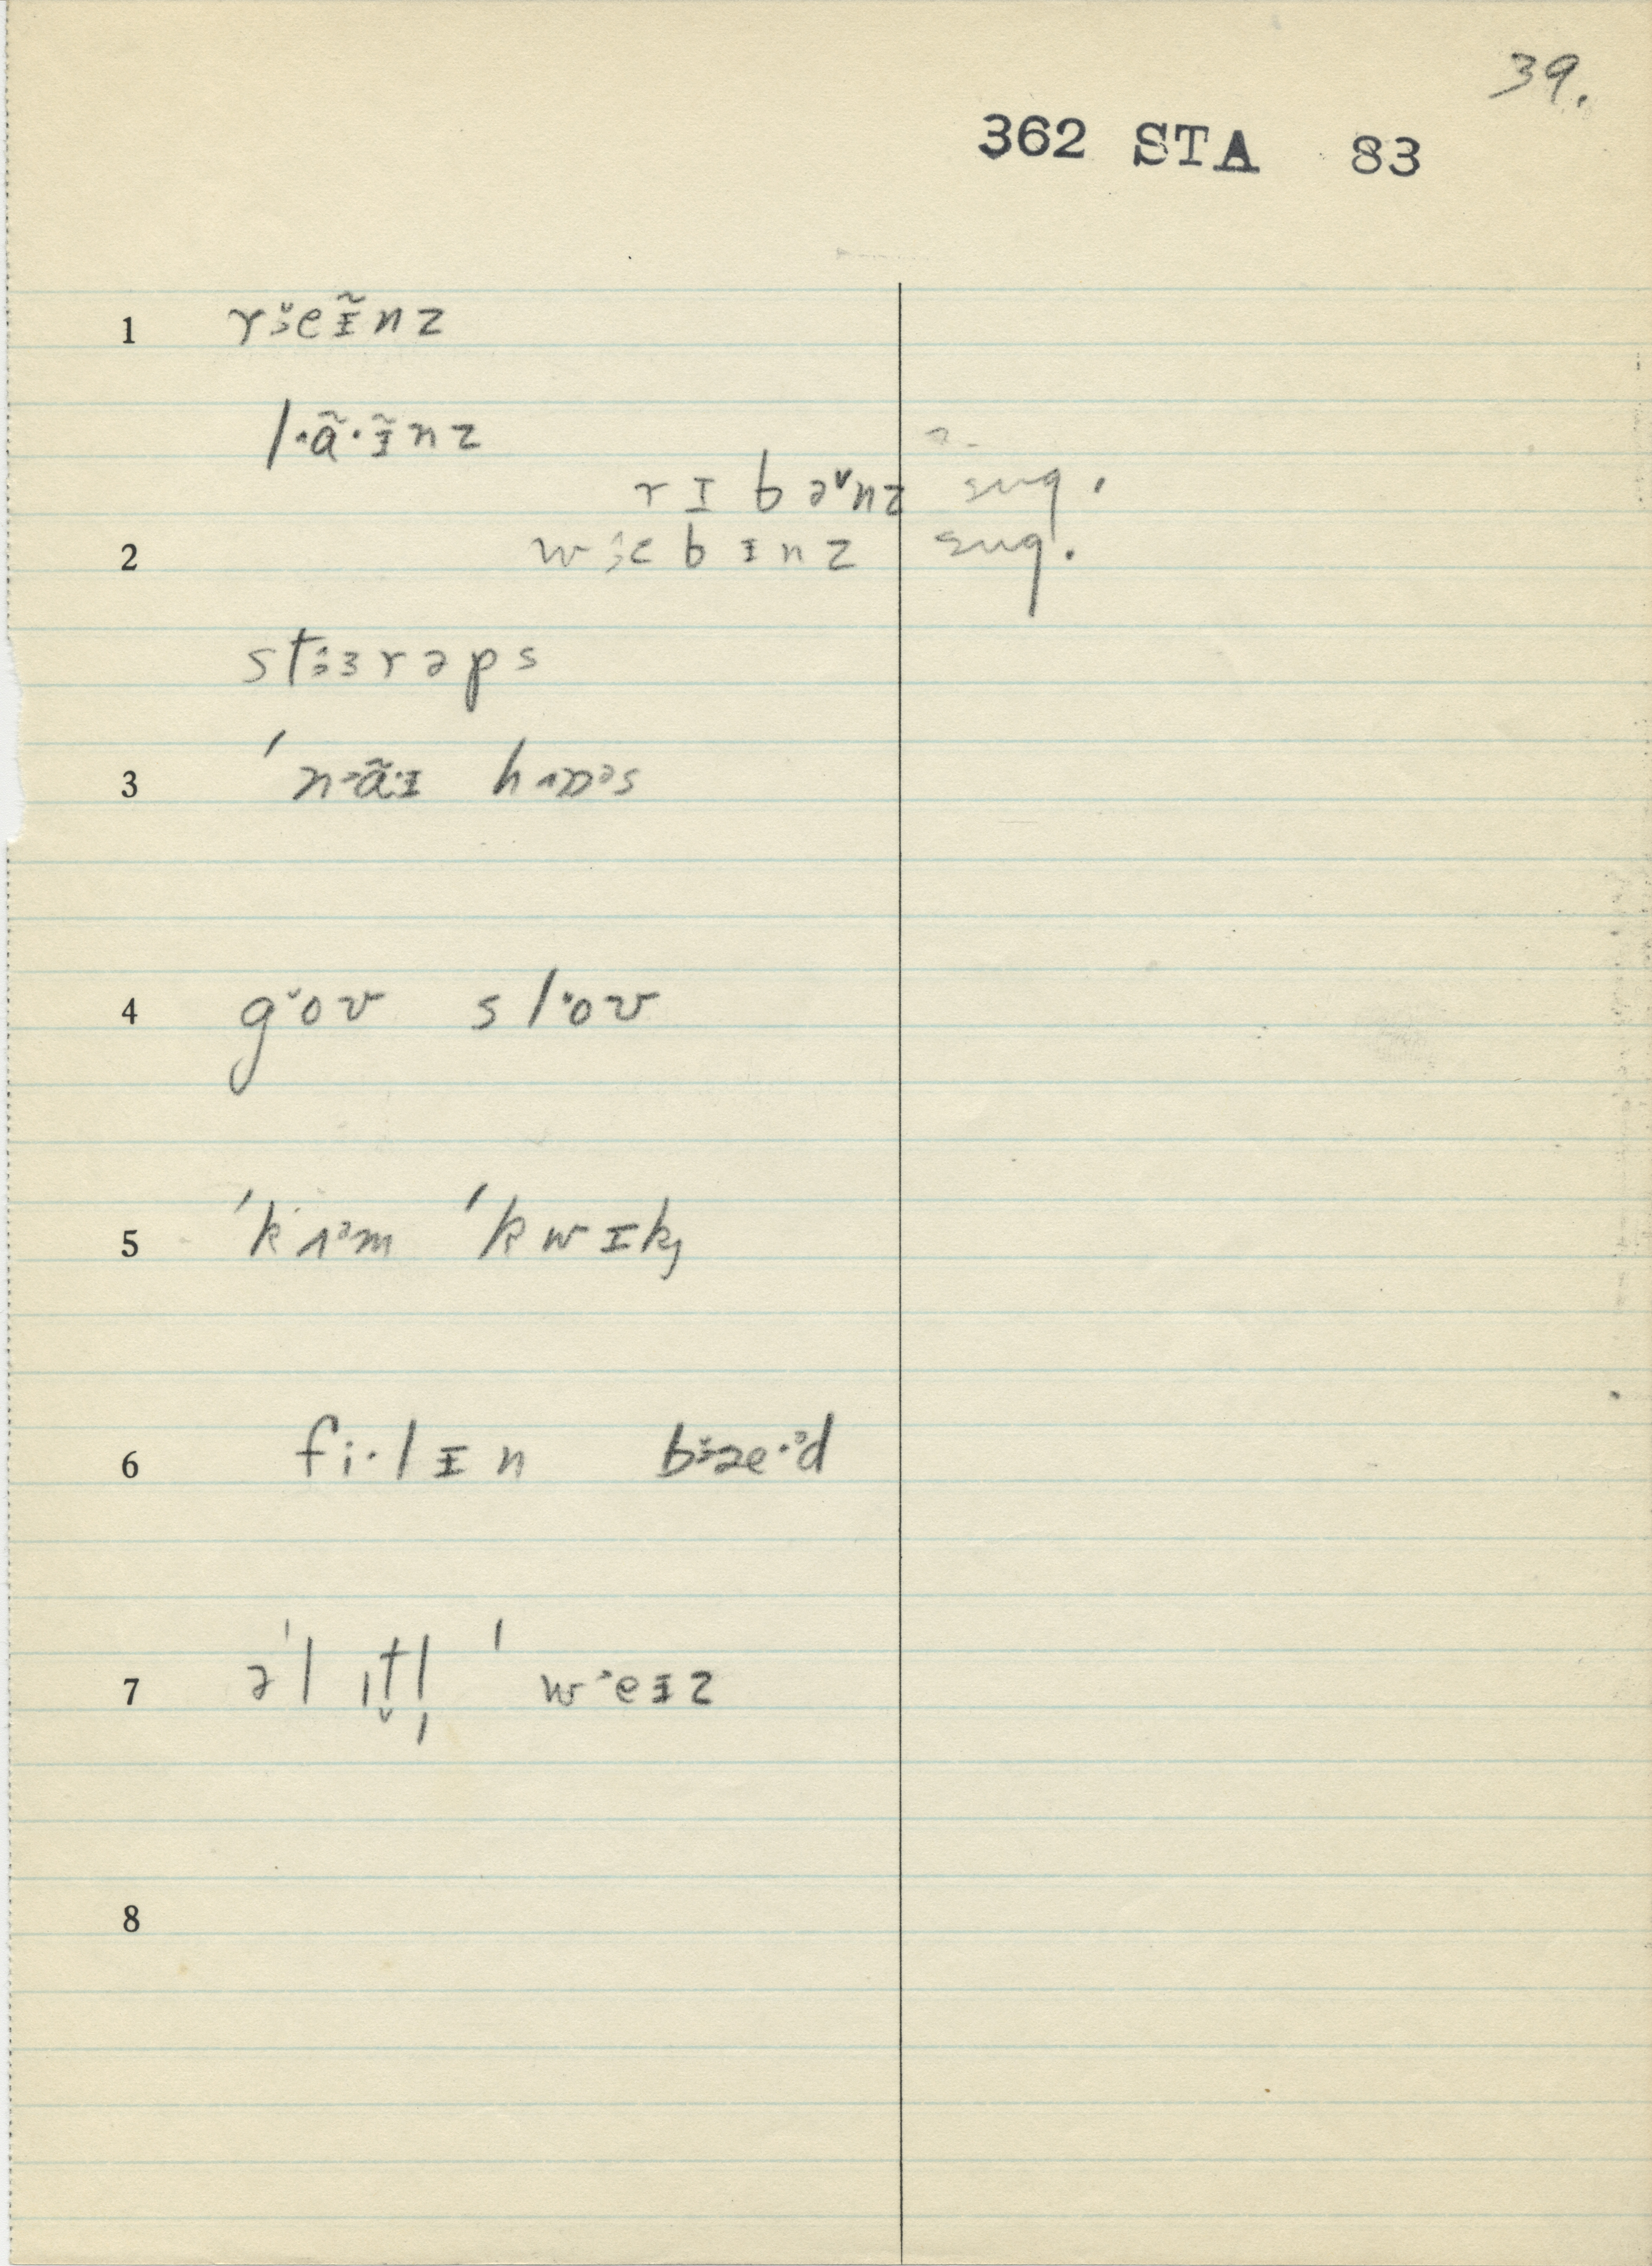 39.
362 STA 83
1 rɜ̆eɪ̃nz
l·ã·ɪ̃nz
rɪbəᵛnz sug.
2 wɜɛbɪnz sug.
stɜɜrəps
3 ˈnɑ̃·ɪ hɒᵊs
4 goʊ sloʊ
5 ˈkʌᵊm ˈkwɪk
6 fi·lɪn bæe·ᵊd
7 əˈlɪt̬l̩ ˈweɪz
8